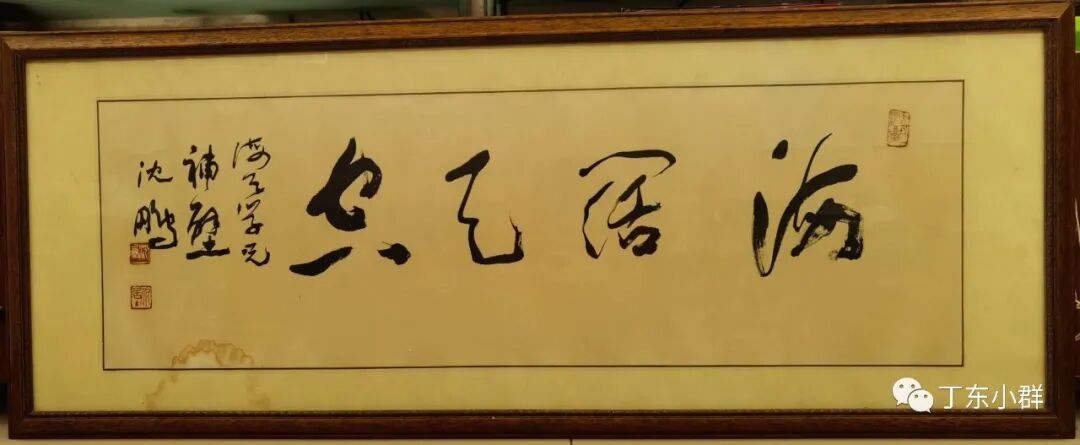 海阔天空
海天学兄
补壁
沈鹏
丁东小群